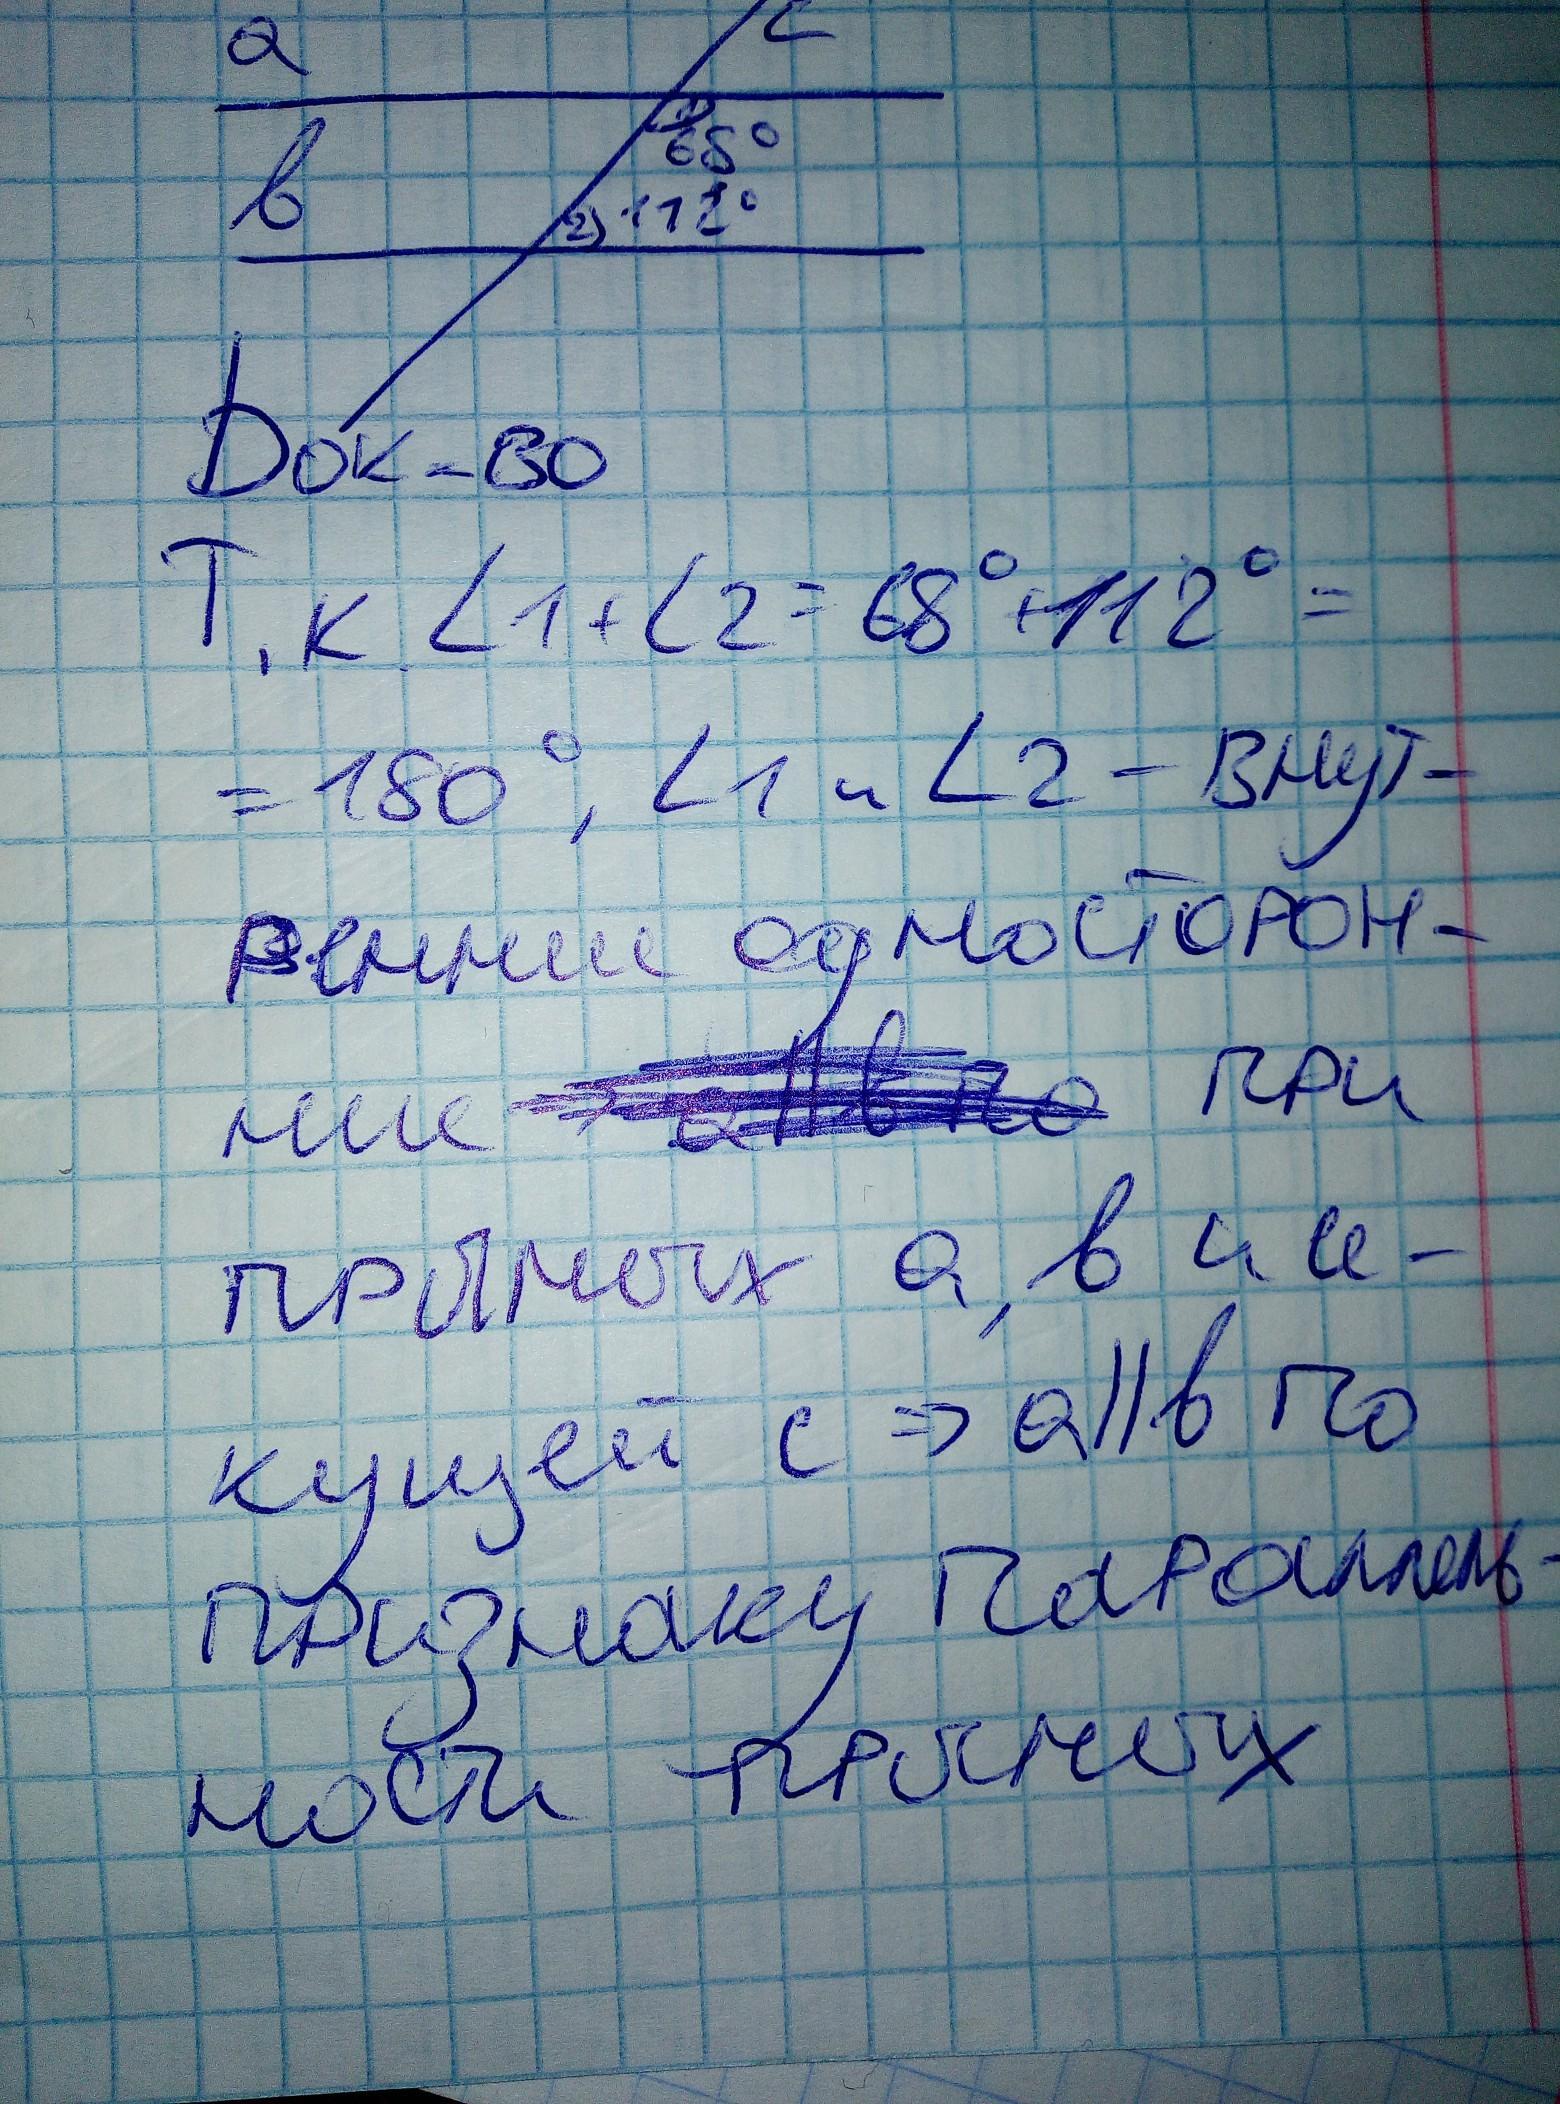 a
c
1)
68°
в
2) 112°
Док-во
Т.к. ∠1+∠2=68°+112°=
=180°, ∠1 и ∠2 - внут-
ренние односторон-
ние при
прямых а, в и се-
кущей с ⇒ а||в по
признаку параллель-
ности прямых